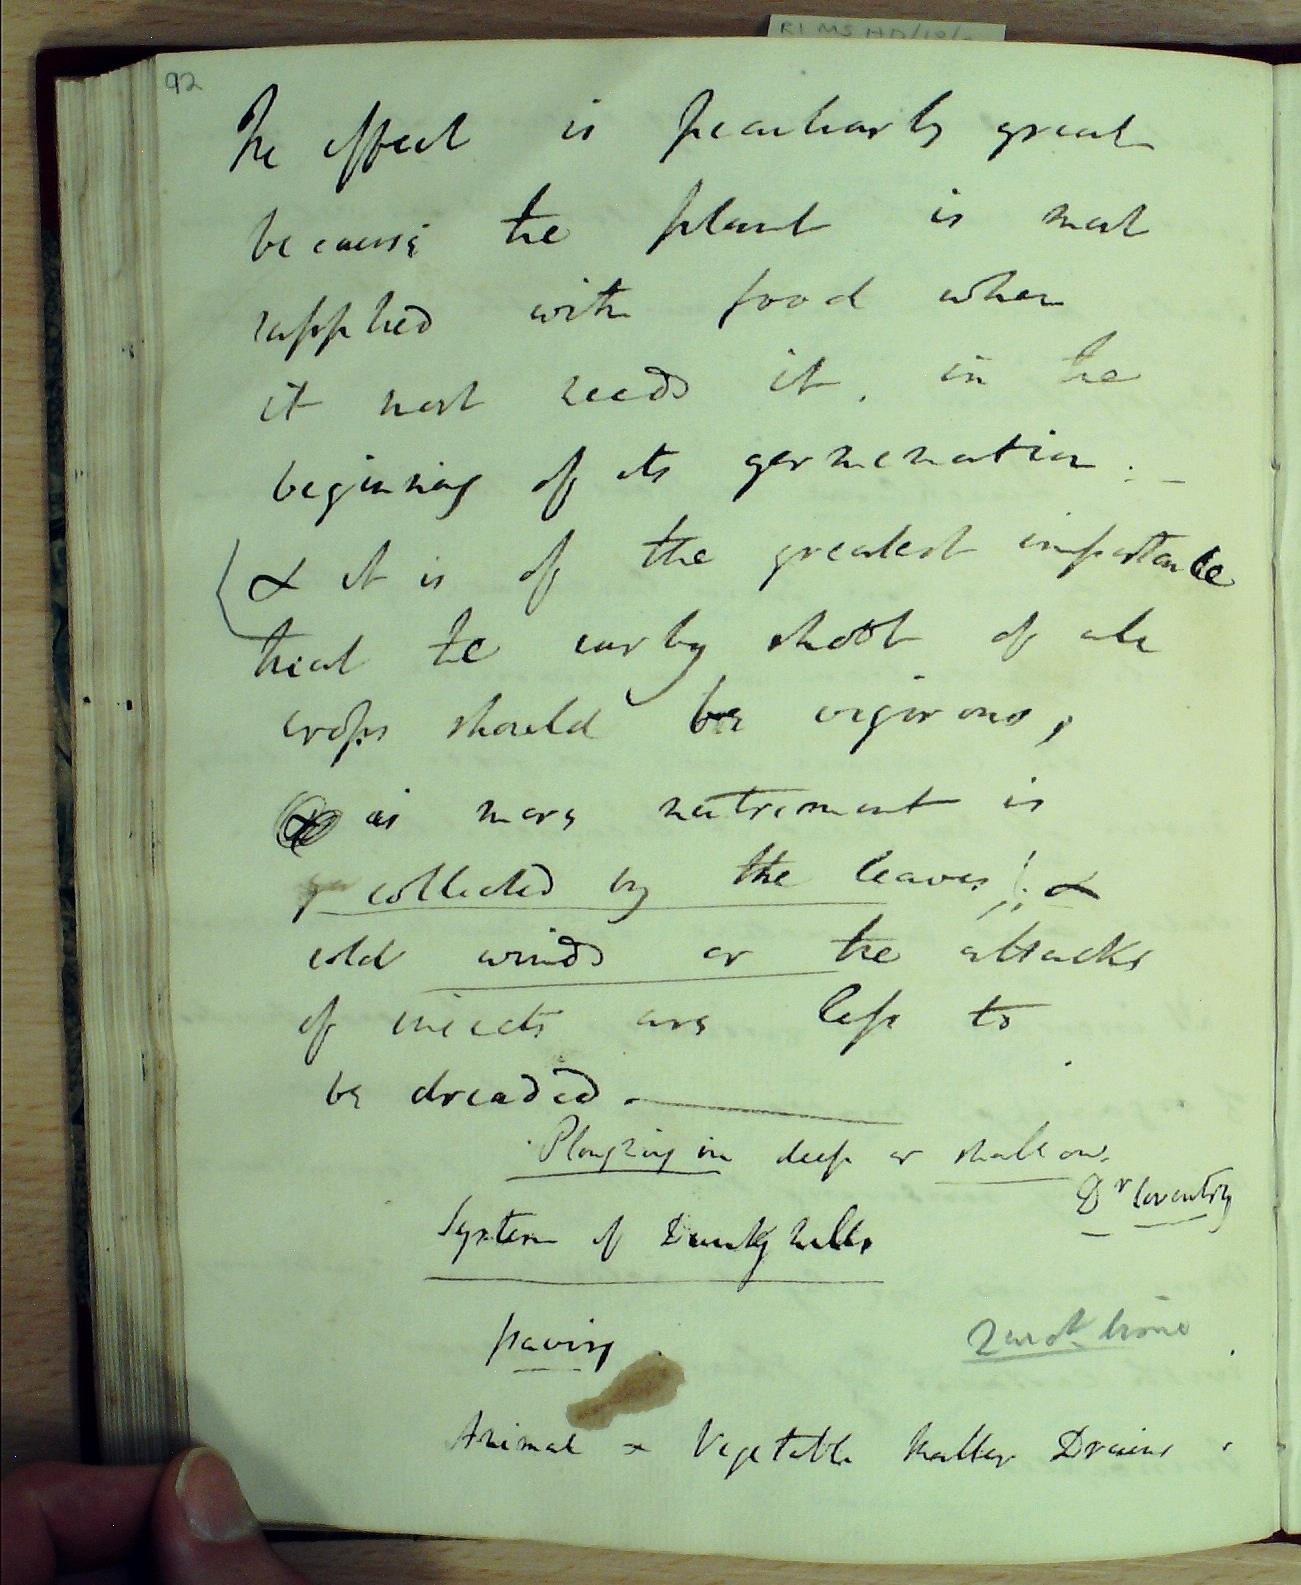 RI MS HD/10/
92
The effect is peculiarly great
because the plant is most
supplied with food when
it most needs it, in the
beginning of its germination. –
& it is of the greatest importance
that the early shoot of all
crops should be vigorous,
as more nutriment is
collected by the leaves; &
cold winds or the attacks
of insects are less to
be dreaded. —
Ploughing in deep or shallow.
Dr Coventry
System of Dunghills
paving
time
Animal & Vegetable Matter Drains